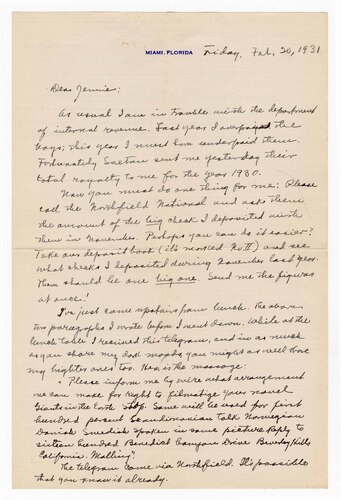 MIAMI, FLORIDA
Friday, Feb. 20, 1931
Dear Jennie;
As usual I am in trouble with the department
of internal revenue. Last year I overpayed the
boys; this year I must have underpaid them.
Fortunately Saxton sent me yesterday their
total royalty to me for the year 1930.
Now you must do one thing for me: Please
call the Northfield National and ask them
the amount of the big check I deposited with
them in November. Perhaps you can do it easier?
Take our deposit book (it's marked No II) and see
what checks I deposited during November last year.
There should be one big one. Send me the figures
at once!
I've just come upstairs from lunch. The above
two paragraphs I wrote before I went down. While at the
lunch table I received this telegram, and in as much
as you share my dark moods you might as well have
my brighter ones too. Here is the message:
"Please inform me by wire what arrangement
we can make for right to filmatize yours novel
Giants in the Earth stop. Same will be used for first
hundred percent Scandinavian talk Norwegian
Danish Swedish spoken in same picture Reply to
sixteen hundred Benedict Canyon Drive Beverly Hills
California. Malling".
The telegram came via Northfield. It's possible
that you know it already.